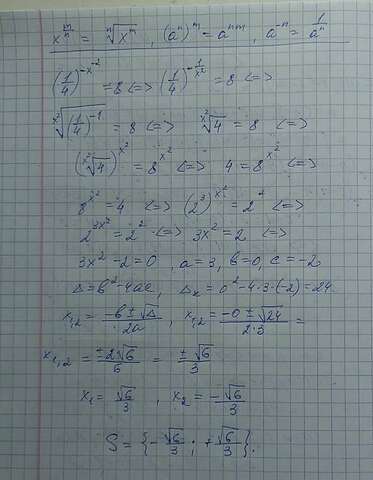 x^(m/n) = ⁿ√(x^m) , (aⁿ)^m = a^(nm) , a^(-n) = 1/aⁿ
(1/4)^(-x^(-2)) = 8 <=> (1/4)^(-1/x²) = 8 <=>
^(x²)√((1/4)^(-1)) = 8 <=> ^(x²)√4 = 8 <=>
(^(x²)√4)^(x²) = 8^(x²) <=> 4 = 8^(x²) <=>
8^(x²) = 4 <=> (2³)^(x²) = 2² <=>
2^(3x²) = 2² <=> 3x² = 2 <=>
3x² - 2 = 0 , a = 3, b = 0, c = -2
Δ = b² - 4ac, Δₓ = 0² - 4·3·(-2) = 24
x₁,₂ = (-b ± √Δ)/2a , x₁,₂ = (-0 ± √24)/(2·3) =
x₁,₂ = (±2√6)/6 = (±√6)/3
x₁ = √6/3 , x₂ = -√6/3
S = {-√6/3 ; +√6/3}.